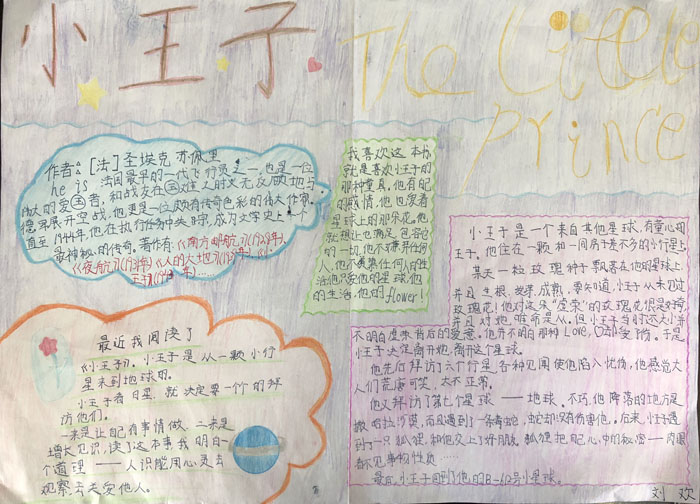 小王子
The Little
Prince
作者:[法]圣埃克 苏佩里
he is 法国最早的一代飞行员之一,也是一位
伟大的爱国者,和战友在国难之时义无反顾地与
德寇展开空战,他更是一位颇有传奇色彩的伟大作家。
直至1944年,他在执行任务中失踪,成为文学史上一个
最神秘的传奇。著作有:《南方邮航》(1928年)、
《夜航》(1931年)《人的大地》(1939年)、《小
王子》(1943年)……
我喜欢这本书,
就是喜欢小王子的
那种童真,他有配
的感情,他也爱着
星球上的那朵花,他
就想让她满足,包容它
的一切,他不嫌弃任何
人,他不羡慕任何人的生活
他只爱他的星球,他
的生活,他的flower!
最近我阅读了
《小王子》,小王子是从一颗小行
星来到地球的。
小王子看日星,就决定要一个个的拜
访他们。
一来是让自己有事情做,二来是
增长见识,读了这本书我明白一
个道理——人只能用心灵去
观察去去爱他人。
小王子是一个来自其他星球,有童心的
王子,他住在一颗和一间房子差不多的小行星上
某天一粒玫瑰种子飘落在他的星球上,
并且生根、发芽、成熟,要知道,小王子从未见过
玫瑰花!他对这朵“虚荣”的玫瑰花很是好奇
并且对她唯命是从,但小王子当时还太小并
不明白虚荣背后的爱意。他并不明白那种Love,
小王子决定离开她,离开这个星球。
他先后拜访了六个行星,各种见闻使他陷入忧伤,他感觉大
人们荒唐可笑、太不正常。
他又拜访了第七个星球——地球,不巧,他降落的地方是
撒哈拉沙漠,而且遇到了一条毒蛇,蛇却没有伤害他。后来,小王子遇
到了一只狐狸,和他交上了好朋友,狐狸把自己心中的秘密——肉眼
看不见事物性质……
最后,小王子回到他的B-612号小星球。
刘欢